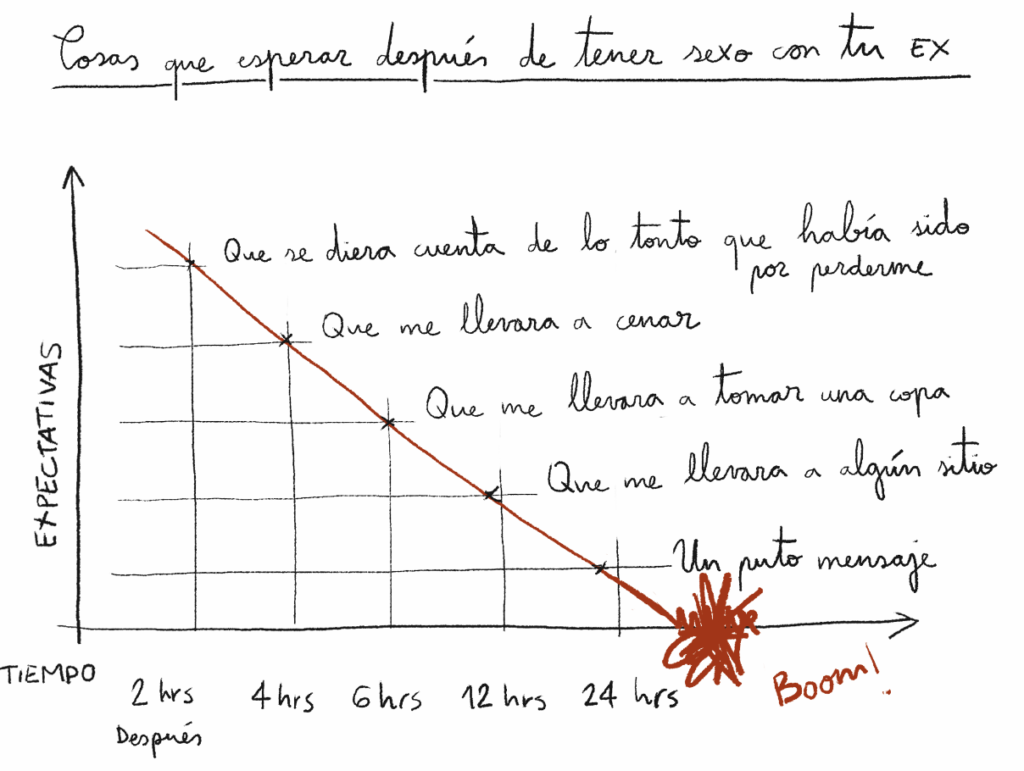 Cosas que esperar después de tener sexo con tu EX
Que se diera cuenta de lo tonto que había sido
por perderme
Que me llevara a cenar
Que me llevara a tomar una copa
Que me llevara a algún sitio
Un puto mensaje
EXPECTATIVAS
TIEMPO
2 hrs 4 hrs 6 hrs 12 hrs 24 hrs
Después
Boom!